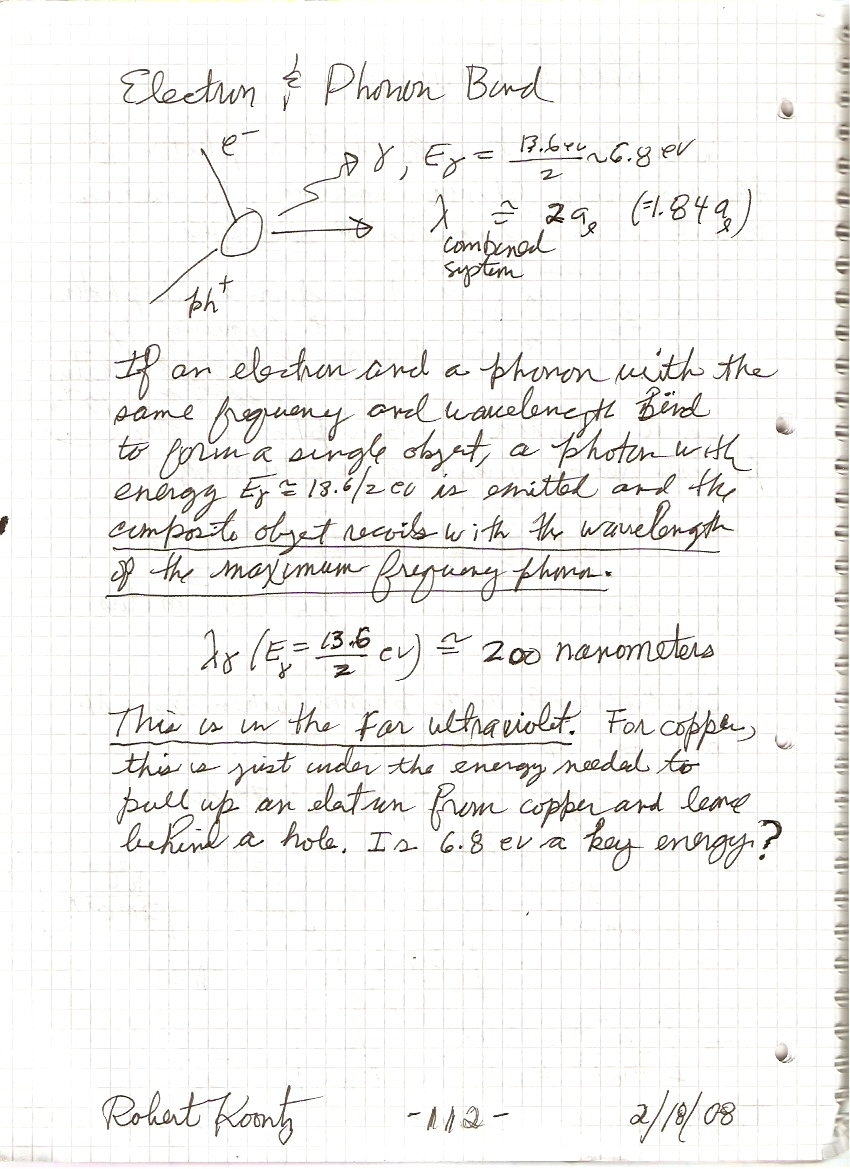 Electron & Phonon Bind
e⁻
γ, Eγ = 13.6ev/2 ~ 6.8 ev
λ ≅ 2aₑ (=1.84aₑ)
combined
system
ph⁺
If an electron and a phonon with the
same frequency and wavelength Bind
to form a single object, a photon with
energy Eγ ≅ 13.6/2 ev is emitted and the
composite object recoils with the wavelength
of the maximum frequency phonon.
λγ (Eγ = 13.6/2 ev) ≅ 200 nanometers
This is in the Far ultraviolet. For copper,
this is just under the energy needed to
pull up an eletron from copper and leave
behind a hole. Is 6.8 ev a key energy?
Robert Koontz -112- 2/18/08